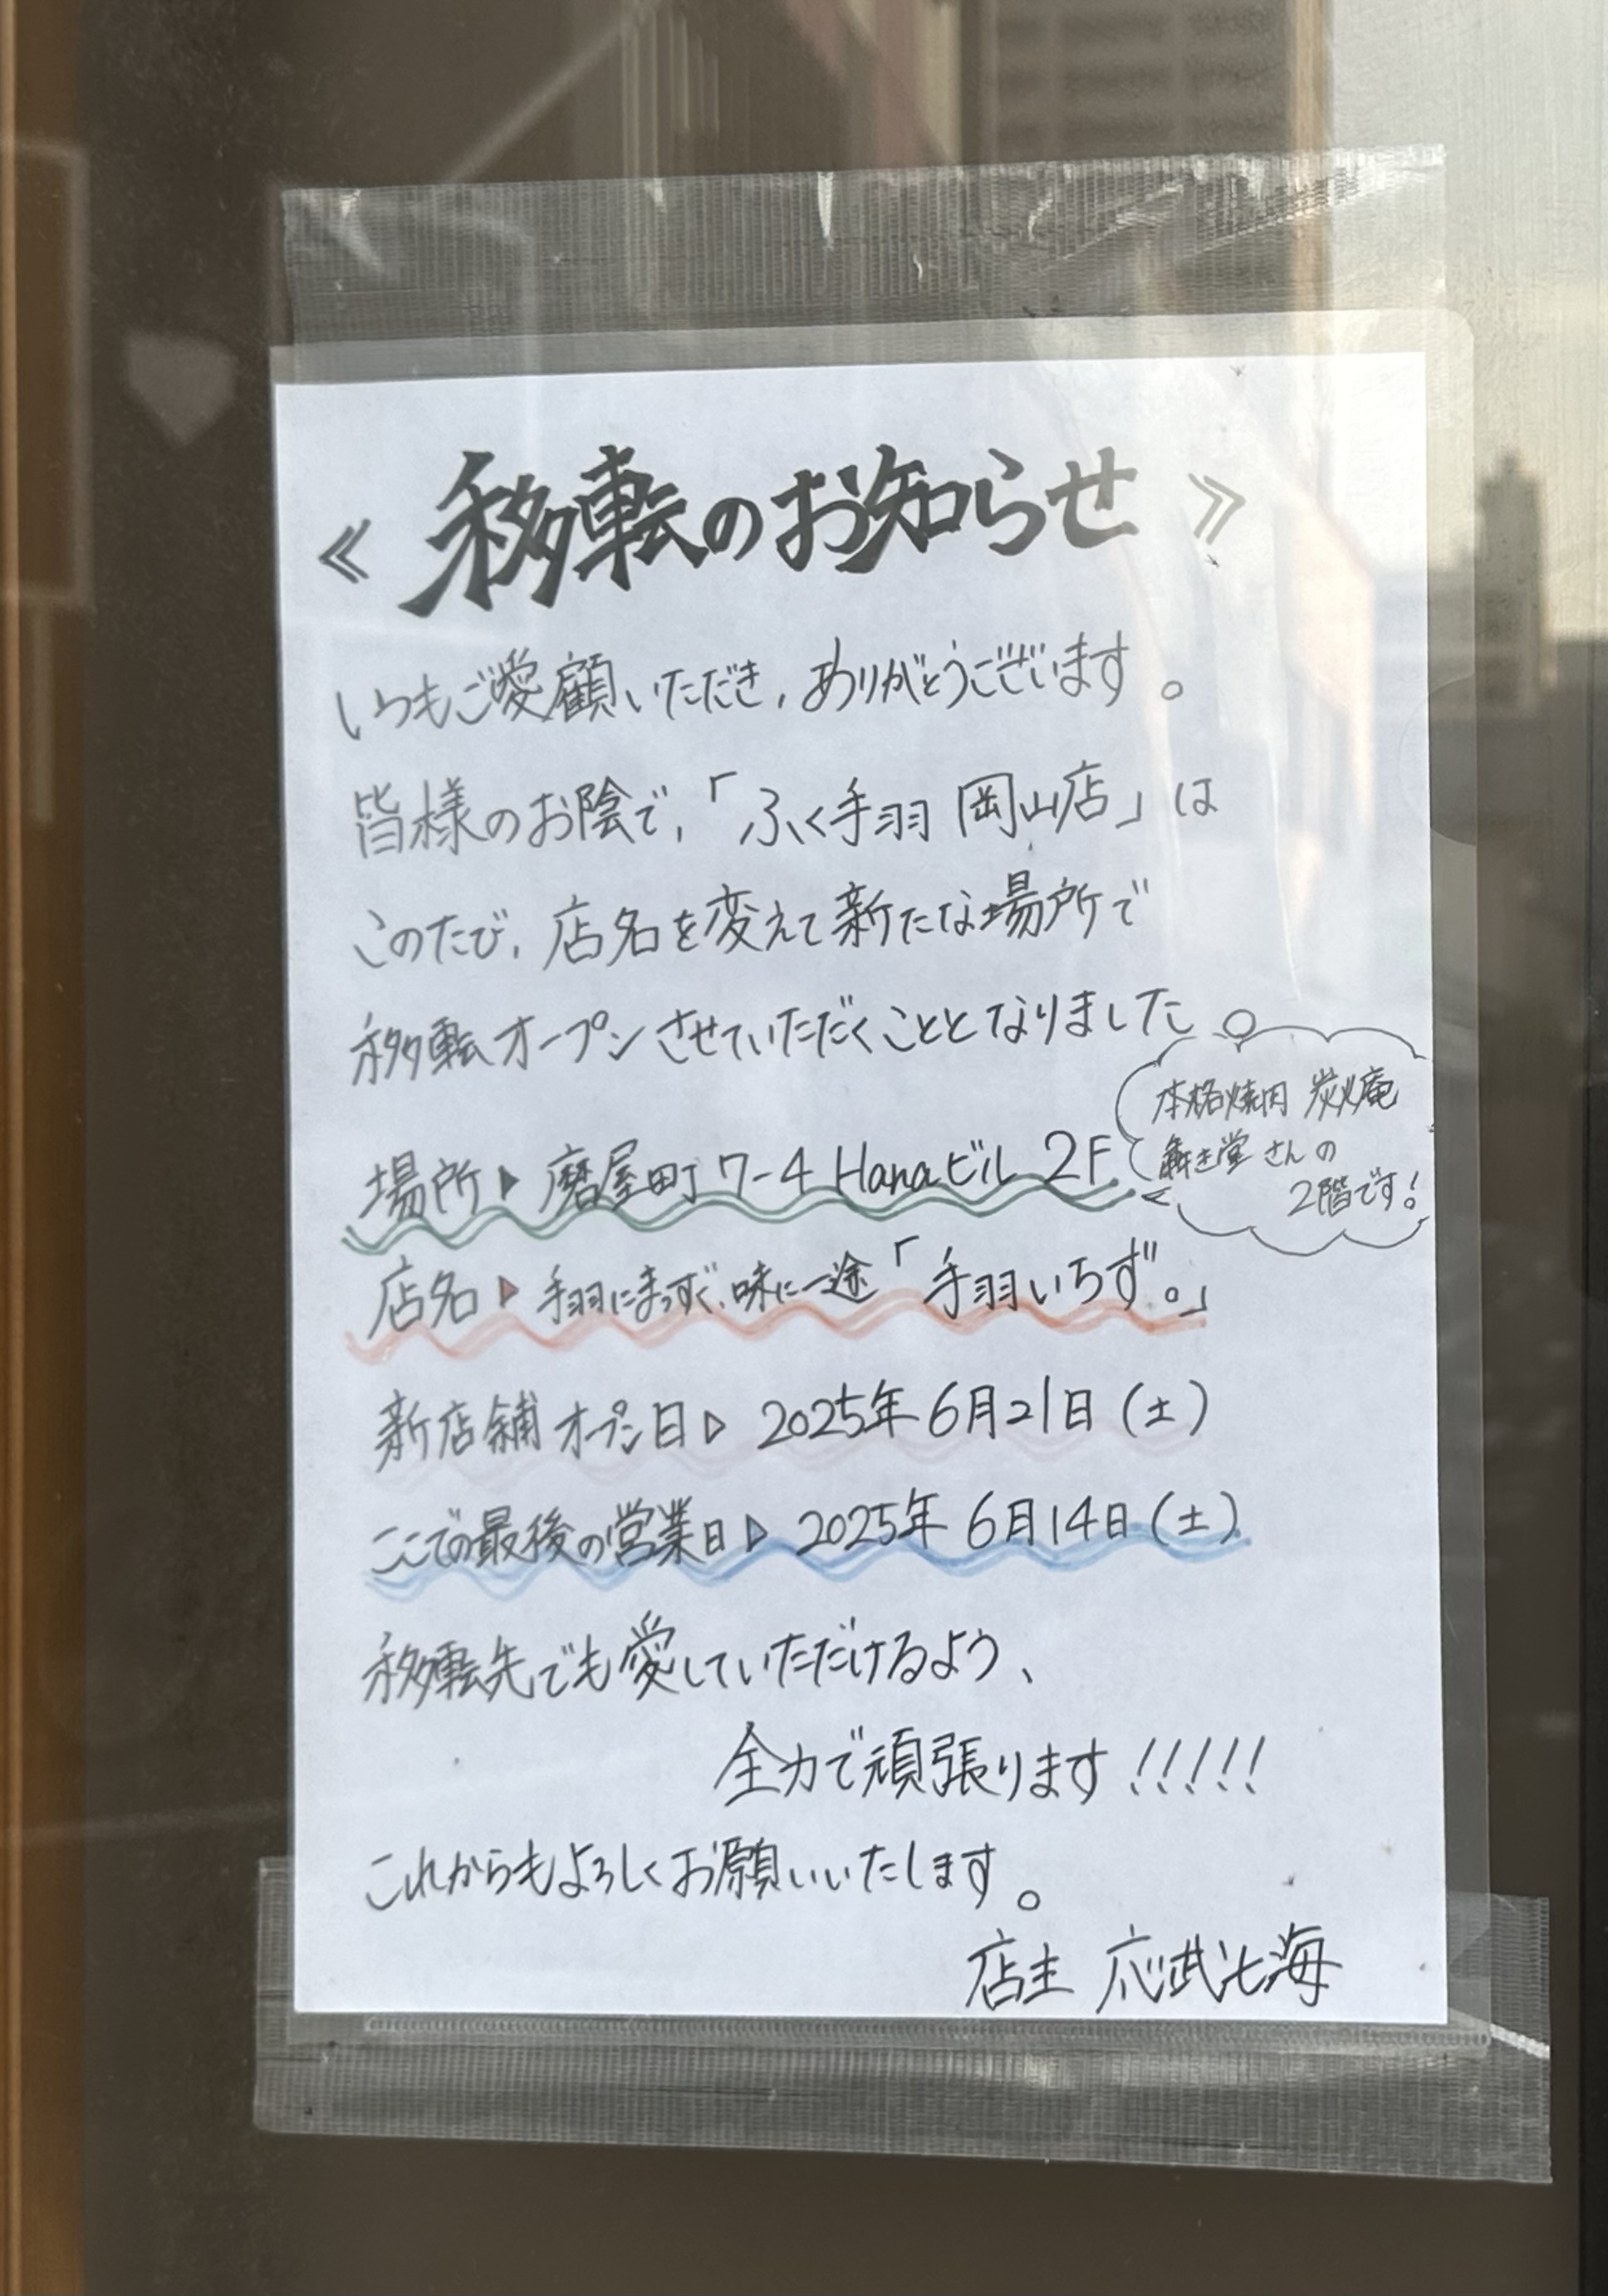 ≪ 移転のお知らせ ≫
いつもご愛顧いただき、ありがとうございます。
皆様のお陰で、「ふく手羽 岡山店」は
このたび、店名を変えて新たな場所で
移転オープンさせていただくこととなりました。
場所▶磨屋町7-4 Hanaビル 2F
本格焼肉 炭火庵
さんの
2階です!
店名▶手羽にまっすぐ、味に一途「手羽いちず。」
新店舗オープン日▷ 2025年6月21日(土)
ここでの最後の営業日▷ 2025年6月14日(土)
移転先でも愛していただけるよう、
全力で頑張ります!!!!!
これからもよろしくお願いいたします。
店主 応武七海